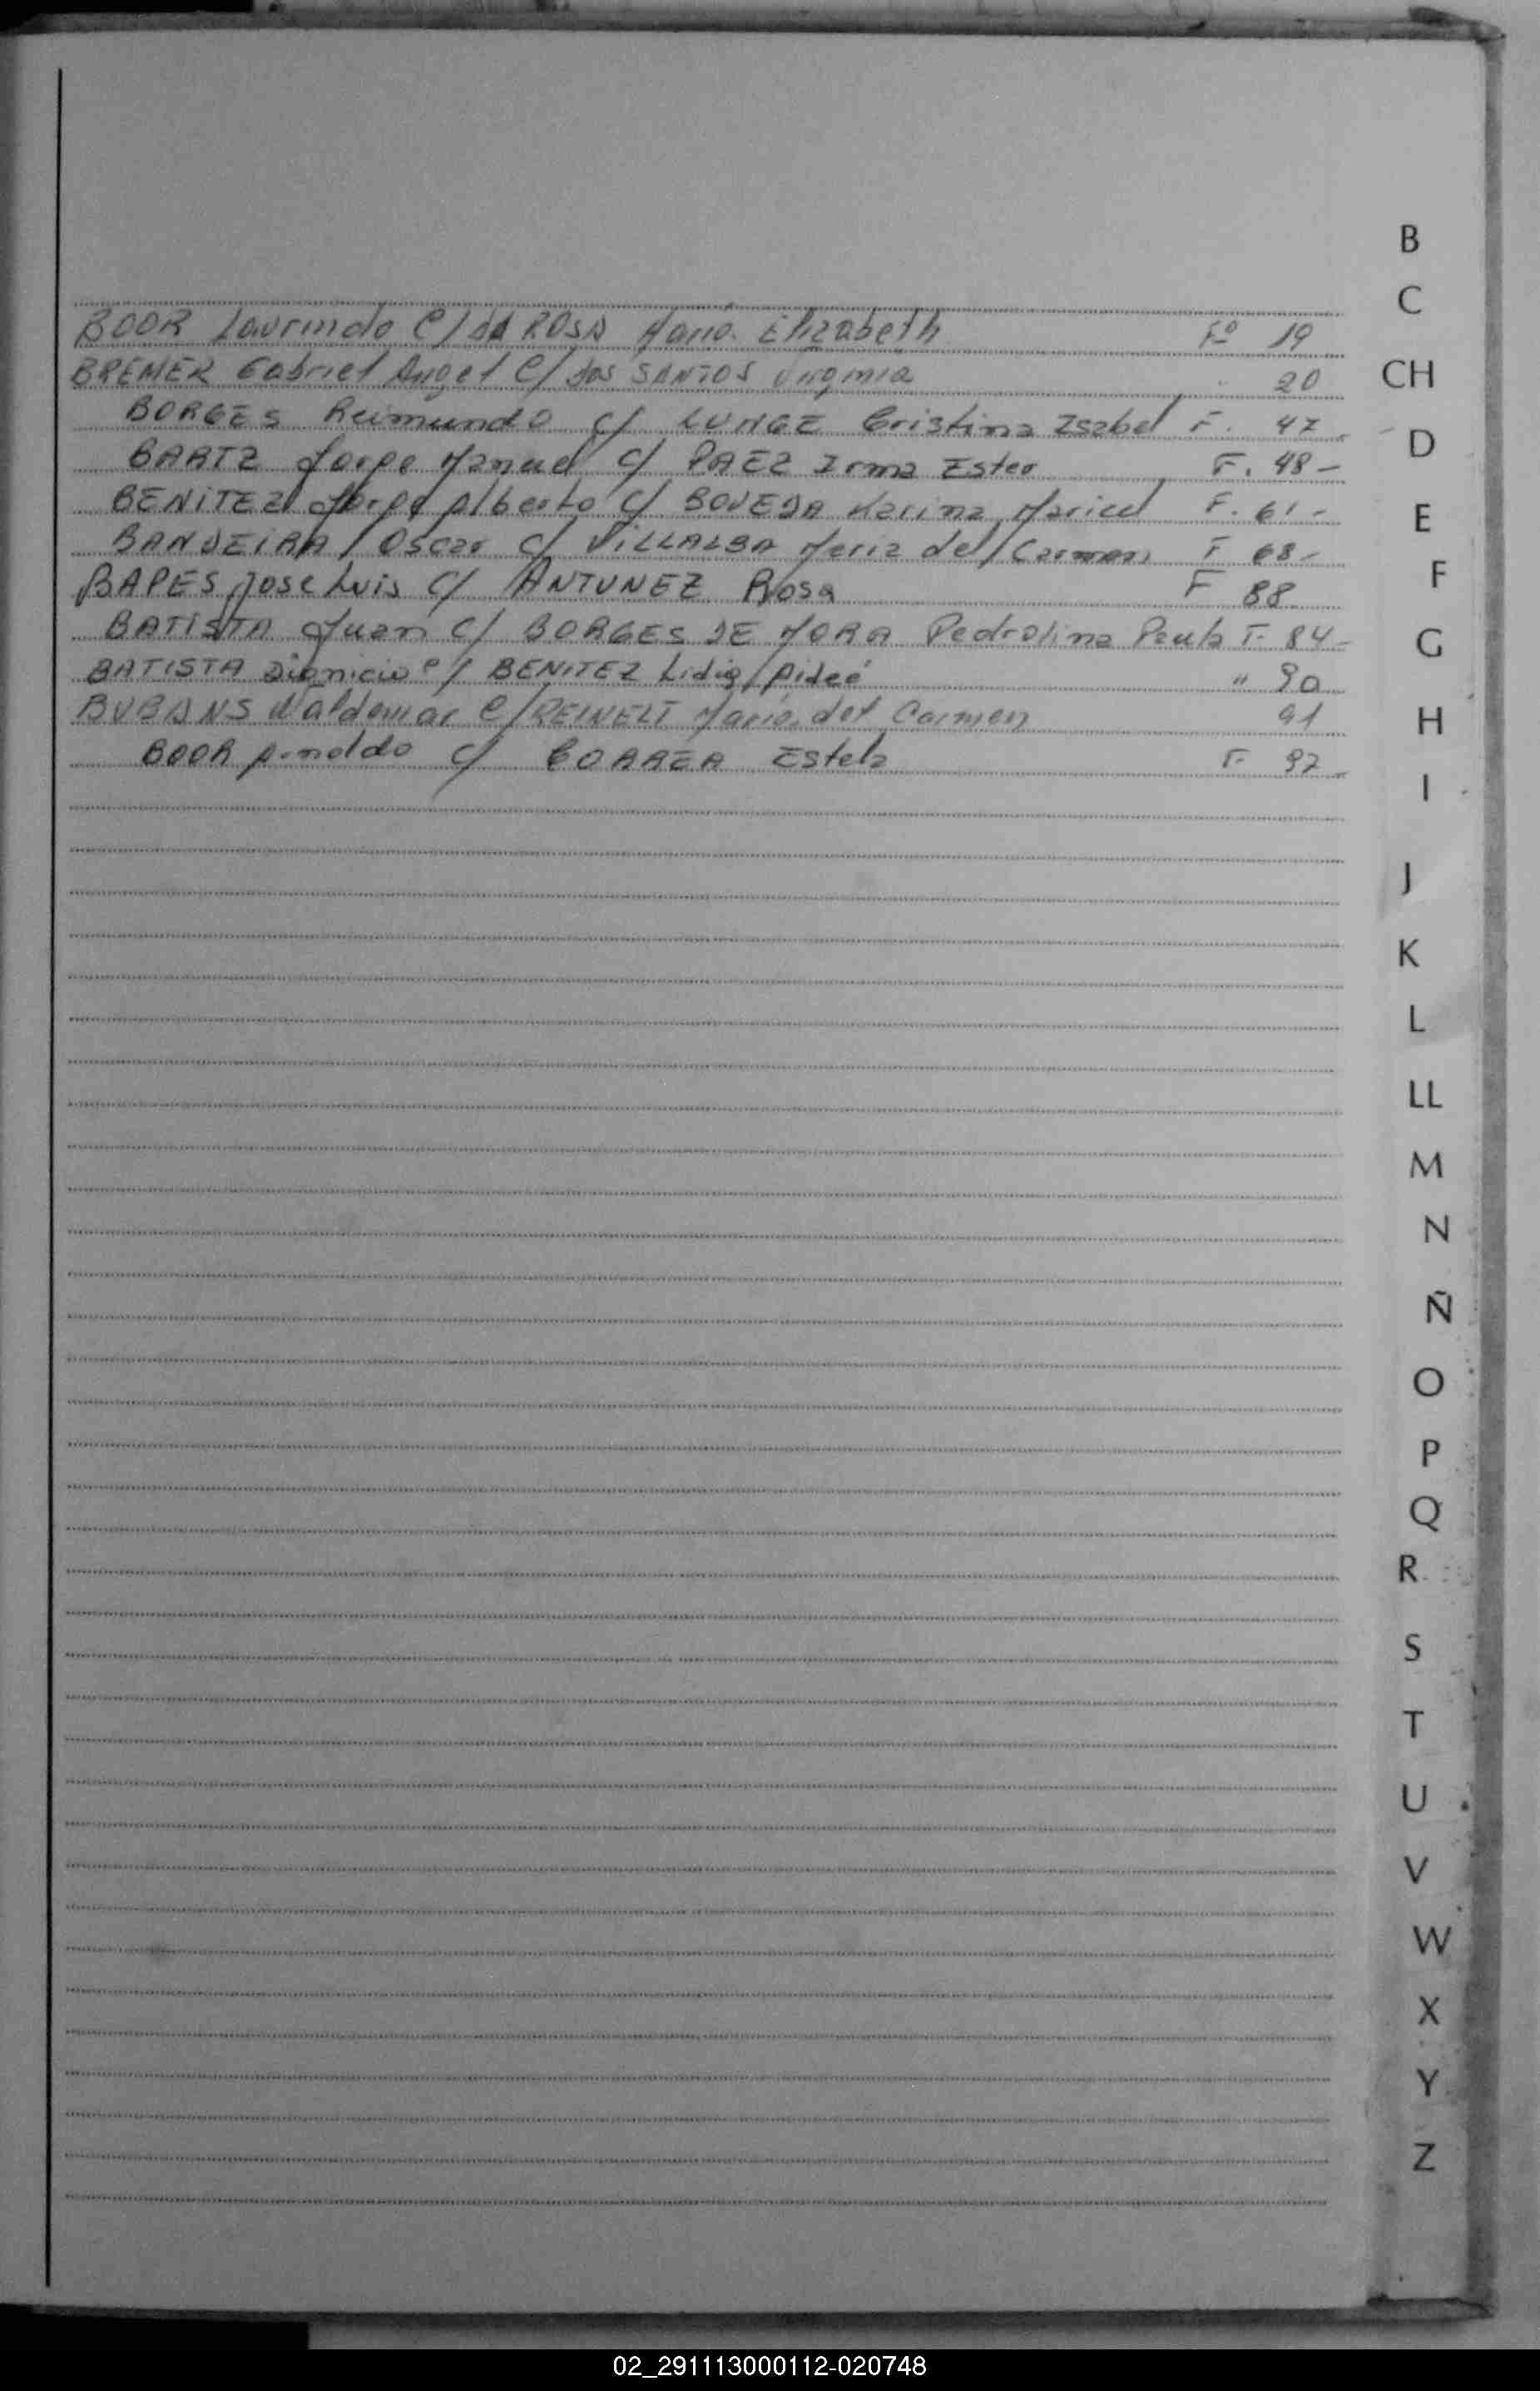 BOOR Laurindo C/ da ROSA María Elizabeth Fº 19
BREMER Gabriel Angel C/ dos SANTOS Virginia 20
BORGES Reimundo C/ LUNGE Cristina Isabel F. 47
BARTZ Jorge Manuel C/ PAEZ Irma Ester F. 48-
BENITEZ Jorge Alberto C/ BOVEDA Marina Maricel F. 61-
BANDEIRA Oscar C/ VILLALBA Maria del Carmen F 68-
BAPES Jose Luis C/ ANTUNEZ Rosa F 88
BATISTA Juan C/ BORGES DE MORA Pedrolina Paula F- 84-
BATISTA Dionicio C/ BENITEZ Lidia Aideé " 90
BUBANS Waldemar C/ REINELT María del Carmen 91
BOOR Arnoldo C/ CORREA Estela F 97-
B
C
CH
D
E
F
G
H
I
J
K
L
LL
M
N
Ñ
O
P
Q
R
S
T
U
V
W
X
Y
Z
02_291113000112-020748